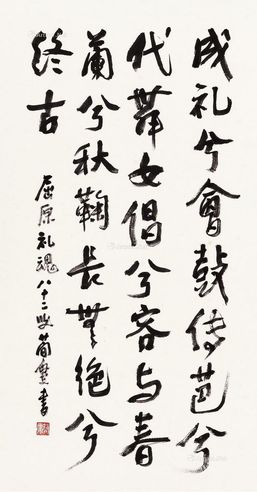 成礼兮會鼓传芭兮
代舞女倡兮容与春
蘭兮秋鞠长無绝兮
终古
屈原礼魂 八十二叟 书